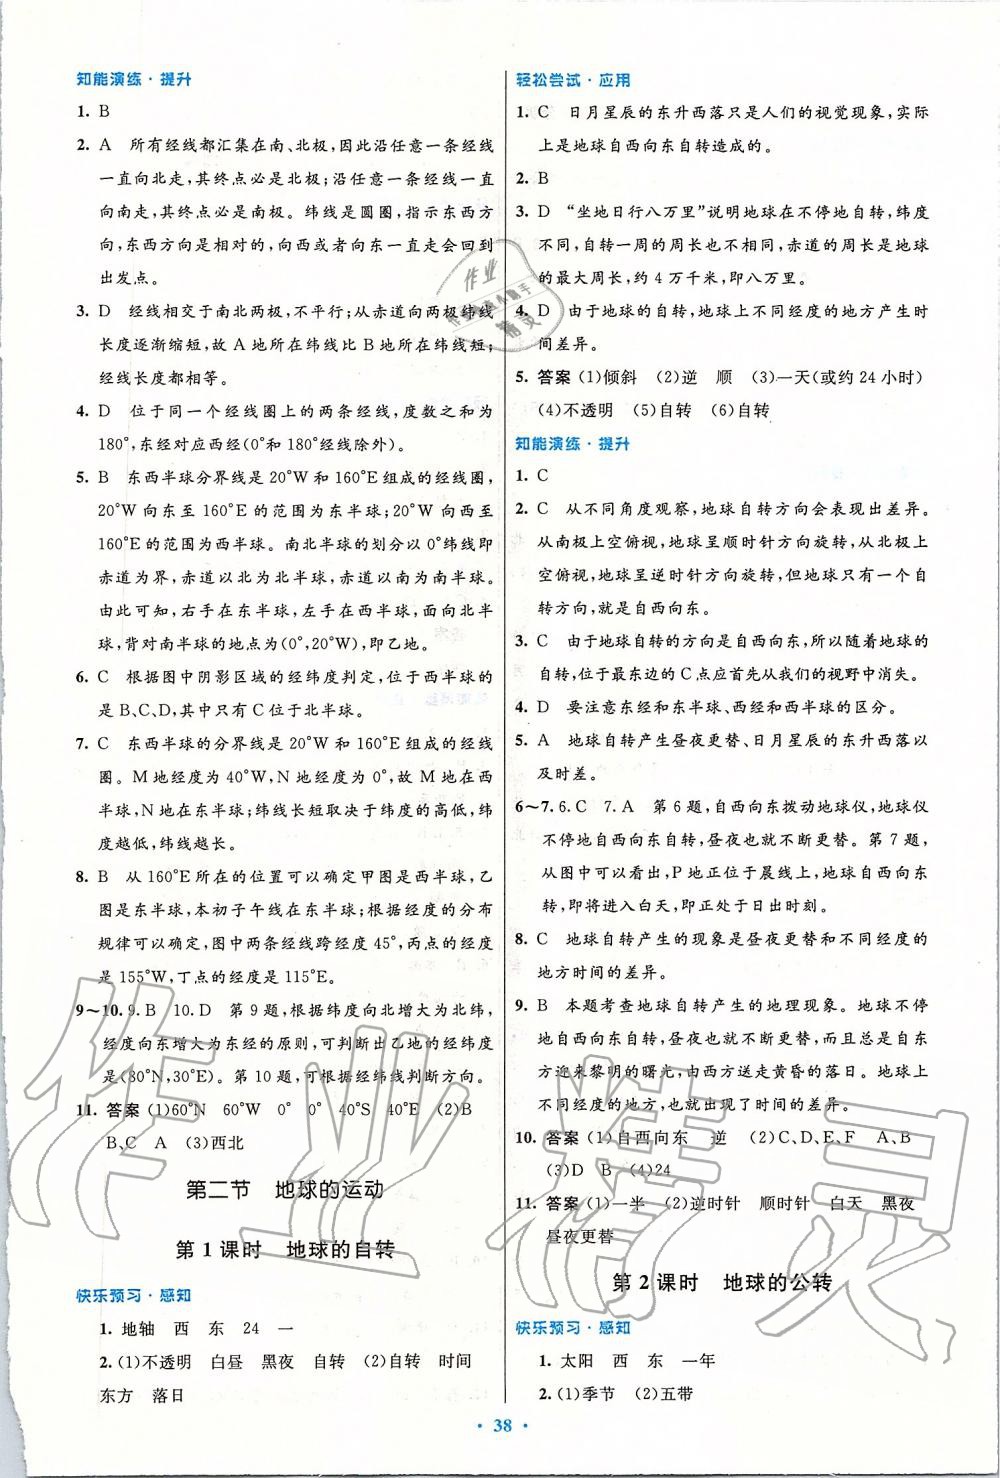 知能演练·提升
1. B
2. A　所有经线都汇集在南、北极,因此沿任意一条经线
一直向北走,其终点必是北极;沿任意一条经线一直
向南走,其终点必是南极。纬线是圆圈,指示东西方
向,东西方向是相对的,向西或者向东一直走会回到
出发点。
3. D　经线相交于南北两极,不平行;从赤道向两极纬线
长度逐渐缩短,故 A 地所在纬线比 B 地所在纬线短;
经线长度都相等。
4. D　位于同一个经线圈上的两条经线,度数之和为
180°,东经对应西经(0°和 180°经线除外)。
5. B　东西半球分界线是 20°W 和 160°E 组成的经线圈,
20°W 向东至 160°E 的范围为东半球;20°W 向西至
160°E 的范围为西半球。南北半球的划分以 0°纬线即
赤道为界,赤道以北为北半球,赤道以南为南半球。
由此可知,右手在东半球,左手在西半球,面向北半
球,背对南半球的地点为(0°,20°W),即乙地。
6. C　根据图中阴影区域的经纬度判定,位于西半球的
是 B、C、D,其中只有 C 位于北半球。
7. C　东西半球的分界线是 20°W 和 160°E 组成的经线
圈。M 地经度为 40°W,N 地经度为 0°,故 M 地在西
半球,N 地在东半球;纬线长短取决于纬度的高低,纬
度越低,纬线越长。
8. B　从 160°E 所在的位置可以确定甲图是西半球,乙
图是东半球,本初子午线在东半球;根据经度的分布
规律可以确定,图中两条经线跨经度 45°,丙点的经度
是 155°W,丁点的经度是 115°E。
9～10. 9. B　10. D　第 9 题,根据纬度向北增大为北纬,
经度向东增大为东经的原则,可判断出乙地的经纬度
是(80°N,30°E)。第 10 题,可根据经纬线判断方向。
11. 答案 (1)60°N　60°W　0°　0°　40°S　40°E　(2)B
B、C　A　(3)西北
第二节　地球的运动
第 1 课时　地球的自转
快乐预习·感知
1. 地轴　西　东　24　一
2. (1)不透明　白昼　黑夜　自转　(2)自转　时间
东方　落日
轻松尝试·应用
1. C　日月星辰的东升西落只是人们的视觉现象,实际
上是地球自西向东自转造成的。
2. B
3. D　“坐地日行八万里”说明地球在不停地自转,纬度
不同,自转一周的周长也不相同,赤道的周长是地球
的最大周长,约 4 万千米,即八万里。
4. D　由于地球的自转,地球上不同经度的地方产生时
间差异。
5. 答案 (1)倾斜　(2)逆　顺　(3)一天(或约 24 小时)
(4)不透明　(5)自转　(6)自转
知能演练·提升
1. C
2. C　从不同角度观察,地球自转方向会表现出差异。
从南极上空俯视,地球呈顺时针方向旋转,从北极上
空俯视,地球呈逆时针方向旋转,但地球只有一个自
转方向,就是自西向东。
3. C　由于地球自转的方向是自西向东,所以随着地球的
自转,位于最东边的 C 点应首先从我们的视野中消失。
4. D　要注意东经和东半球、西经和西半球的区分。
5. A　地球自转产生昼夜更替、日月星辰的东升西落以
及时差。
6～7. 6. C　7. A　第 6 题,自西向东拨动地球仪,地球仪
不停地自西向东自转,昼夜也就不断更替。第 7 题,
从图中可以看出,P 地正位于晨线上,地球自西向东
转,即将进入白天,即正处于日出时刻。
8. C　地球自转产生的现象是昼夜更替和不同经度的
地方时间的差异。
9. B　本题考查地球自转产生的地理现象。地球不停
地自西向东自转,昼夜也就不断更替,而且总是自东
方迎来黎明的曙光,由西方送走黄昏的落日。地球上
不同经度的地方,也就出现了时间的差异。
10. 答案 (1)自西向东　逆　(2)C、D、E、F　A、B
(3)D　B　(4)24
11. 答案 (1)一半　(2)逆时针　顺时针　白天　黑夜
昼夜更替
第 2 课时　地球的公转
快乐预习·感知
1. 太阳　西　东　一年
2. (1)季节　(2)五带
· 38 ·
作业精灵